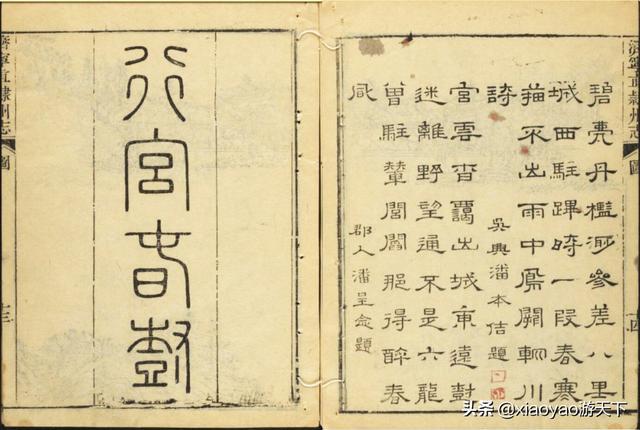 濟寧直隸州志
圖
十四
碧丹檻參差八里
城西駐蹕時一段春寒
描不出雨中鳳闕輞川
詩
吳興潘本佶題
宮雲杳靄出城東遠樹
迷離野望通不是六龍
曾駐輦閭閻那得醉春
風
郡人潘呈念題
行宮春樹
濟寧直隸州志
圖
十三
头条 @xiaoyao游天下